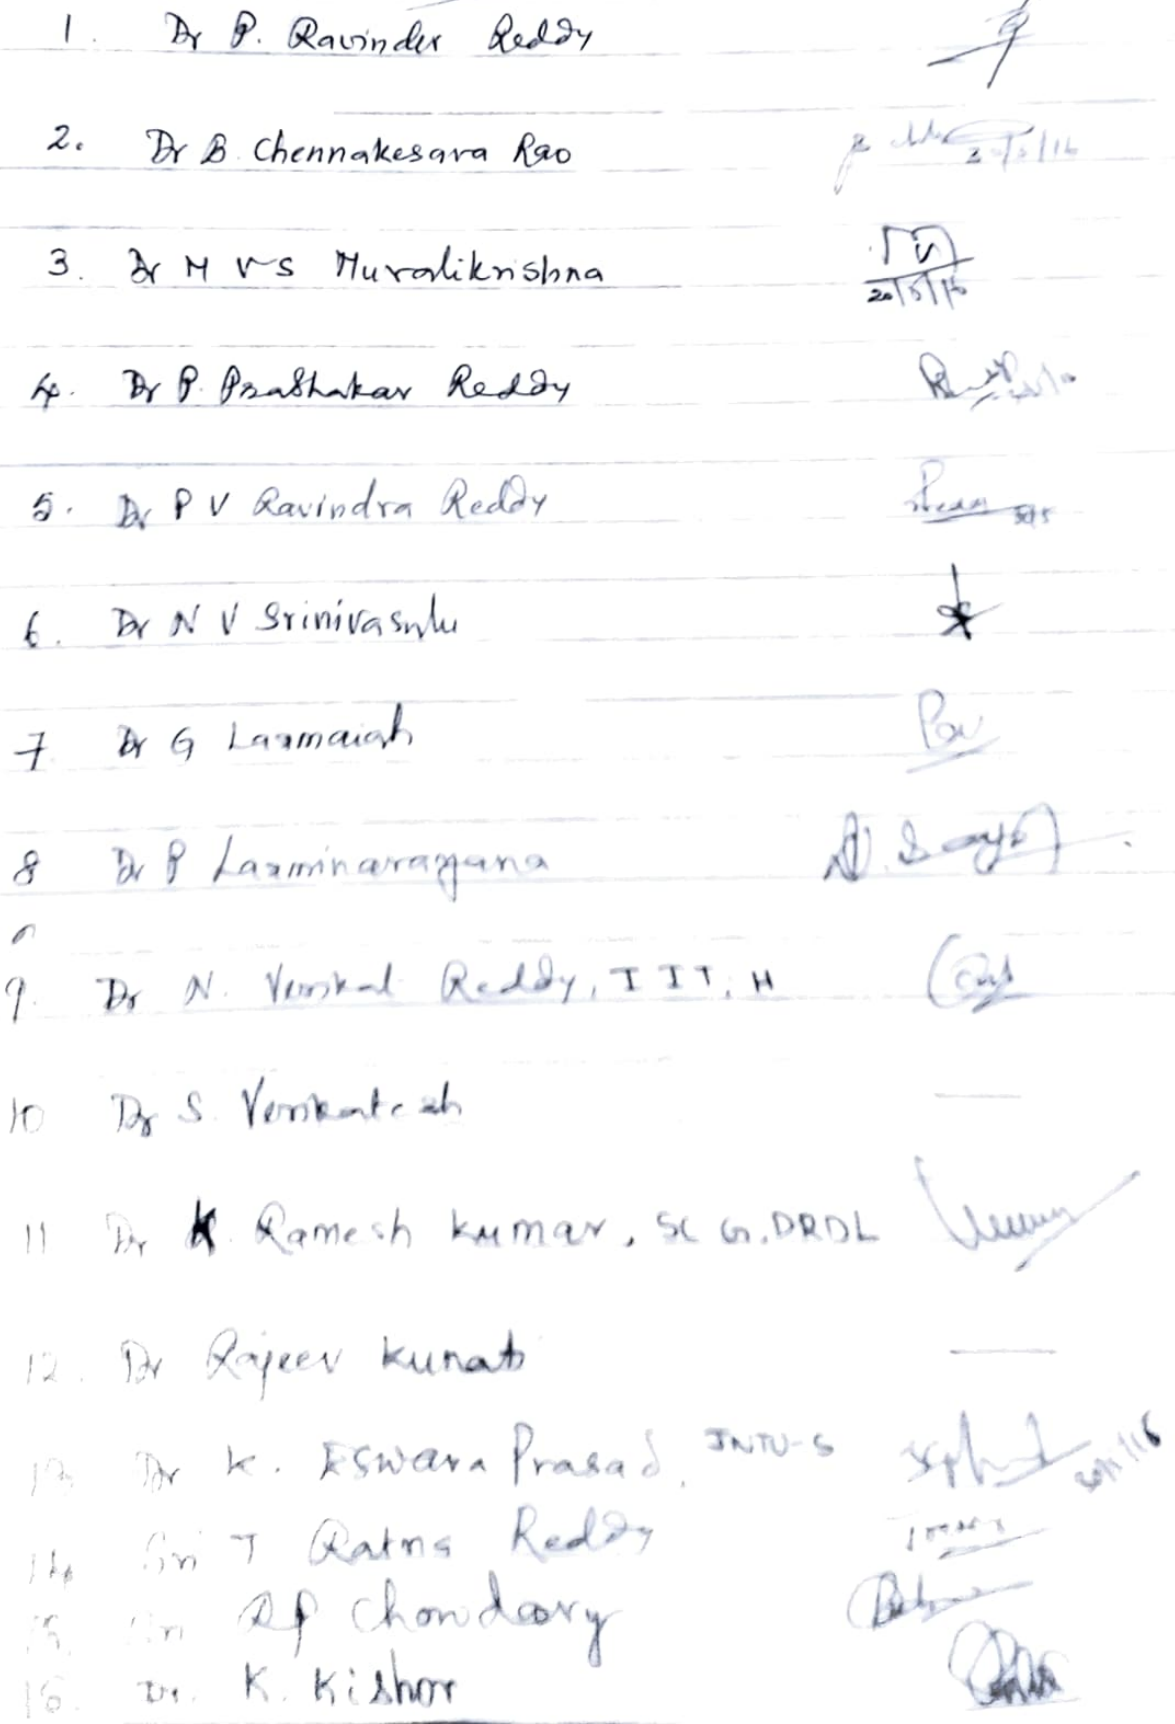 1. Dr P. Ravinder Reddy
2. Dr B. Chennakesava Rao 20/5/16
3. Dr M V S Muralikrishna
20/5/16
4. Dr P. Prabhakar Reddy
5. Dr P V Ravindra Reddy
6. Dr N V Srinivasulu
7 Dr G Laxmaiah
8 Dr P Laxminarayana
9. Dr N. Venkat Reddy, IIT, H
10 Dr S. Venkatesh
11 Dr K. Ramesh Kumar, SC G, DRDL
12. Dr Rajeev
13 Dr K. Eswara Prasad, JNTU-S
14 Sri T Ratna Reddy
15. Sri Chowdary
16. Dr. K. Kishor